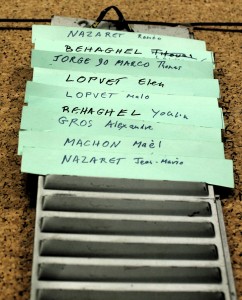 NAZARET Roméo
BEHAGHEL
JORGE DO MARCO Thomas
LOPVET Elen
LOPVET malo
BEHAGHEL
GROS Alexandre
MACHON Maël
NAZARET Jean-Marie